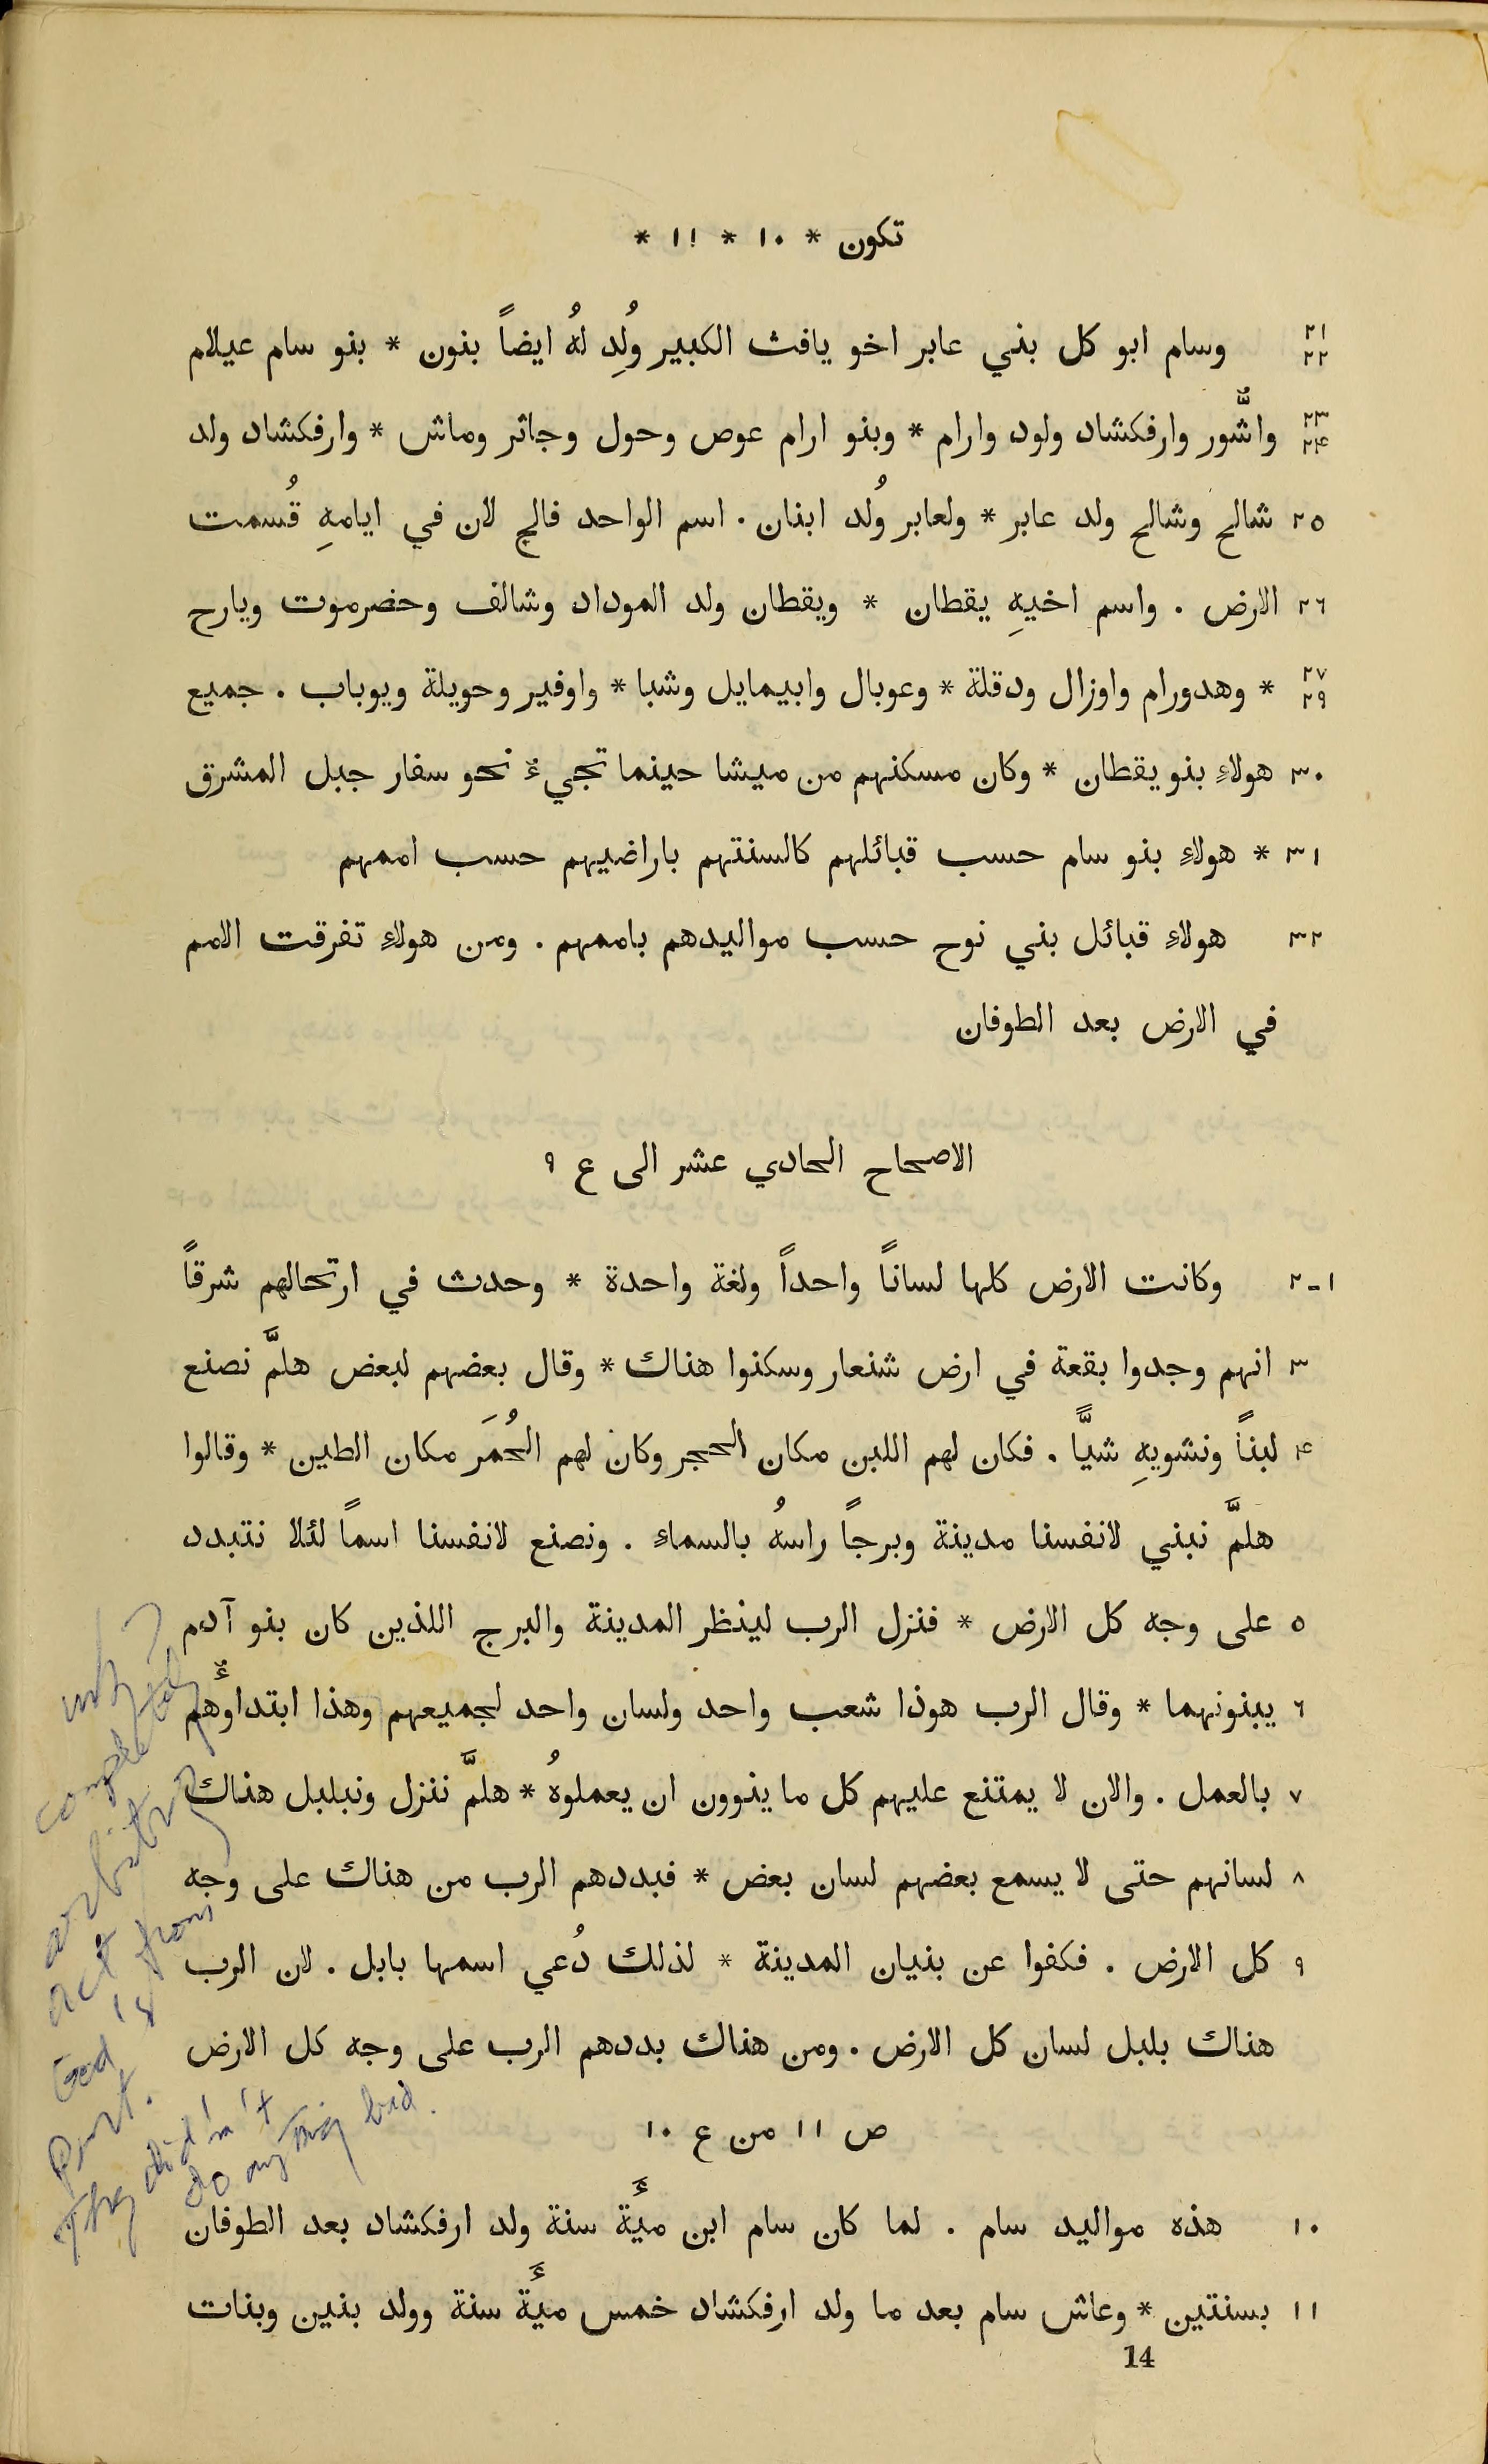 تكون * ١٠ * ١١ *
٢١ ٢٢ وسام ابو كل بني عابر اخو يافث الكبير وُلِد لهُ ايضاً بنون * بنو سام عيلام
٢٣ ٢٤ واشُّور وارفكشاد ولود وارام * وبنو ارام عوص وحول وجاثر وماش * وارفكشاد ولد
٢٥ شالح وشالح ولد عابر * ولعابر وُلد ابنان . اسم الواحد فالج لان في ايامهِ قُسمت
٢٦ الارض . واسم اخيهِ يقطان * ويقطان ولد الموداد وشالف وحضرموت ويارح
٢٧ ٢٩ * وهدورام واوزال ودقلة * وعوبال وابيمايل وشبا * واوفير وحويلة ويوباب . جميع
٣٠ هولاءِ بنو يقطان * وكان مسكنهم من ميشا حينما تجيءُ نحو سفار جبل المشرق
٣١ * هولاءِ بنو سام حسب قبائلهم كالسنتهم باراضيهم حسب اممهم
٣٢ هولاءِ قبائل بني نوح حسب مواليدهم باممهم . ومن هولاءِ تفرقت الامم
في الارض بعد الطوفان
الاصحاح الحادي عشر الى ع ٩
١-٢ وكانت الارض كلها لساناً واحداً ولغة واحدة * وحدث في ارتحالهم شرقاً
٣ انهم وجدوا بقعة في ارض شنعار وسكنوا هناك * وقال بعضهم لبعض هلمَّ نصنع
٤ لبناً ونشويهِ شيًّا . فكان لهم اللبن مكان الحجر وكان لهم الحُمَر مكان الطين * وقالوا
هلمَّ نبني لانفسنا مدينة وبرجاً راسهُ بالسماءِ . ونصنع لانفسنا اسماً لئلا نتبدد
٥ على وجه كل الارض * فنزل الرب لينظر المدينة والبرج اللذين كان بنو آدم
٦ يبنونهما * وقال الرب هوذا شعب واحد ولسان واحد لجميعهم وهذا ابتداوُهم
٧ بالعمل . والان لا يمتنع عليهم كل ما ينوون ان يعملوهُ * هلمَّ ننزل ونبلبل هناك
٨ لسانهم حتى لا يسمع بعضهم لسان بعض * فبددهم الرب من هناك على وجه
٩ كل الارض . فكفوا عن بنيان المدينة * لذلك دُعي اسمها بابل . لان الرب
هناك بلبل لسان كل الارض . ومن هناك بددهم الرب على وجه كل الارض
ص ١١ من ع ١٠
١٠ هذه مواليد سام . لما كان سام ابن مئَة سنة ولد ارفكشاد بعد الطوفان
١١ بسنتين * وعاش سام بعد ما ولد ارفكشاد خمس مئَة سنة وولد بنين وبنات
14
why?
completely
arbitrary
act from
God's
Part.
They didn't
do anything bad.